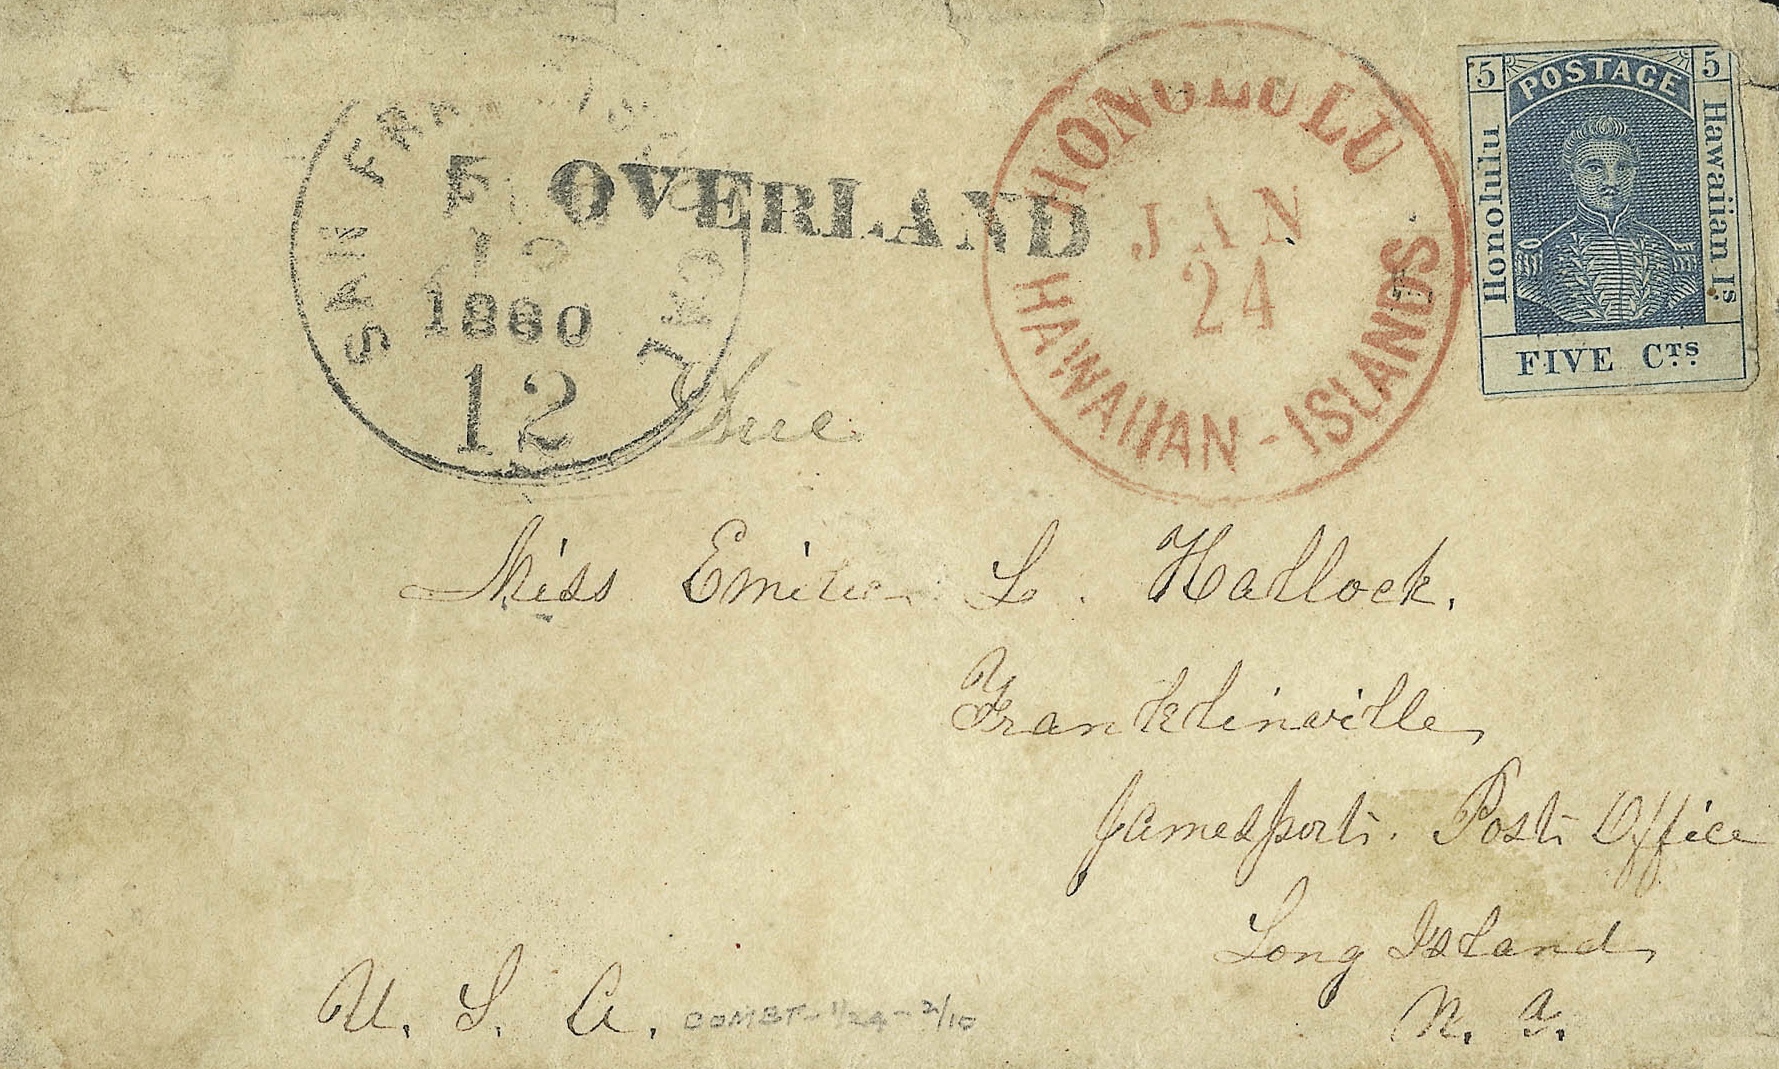 SAN FRANCISCO CAL.
FEB
1860
12
OVERLAND
HONOLULU
JAN
24
HAWAIIAN-ISLANDS
5 POSTAGE 5
Honolulu
Hawaiian Is.
FIVE Cts.
Due
Miss Emilie L. Hallock.
Franklinville,
Jamesport. Post Office
Long Island,
N. Y.
U. S. A.
COMET - 1/24 - 2/10